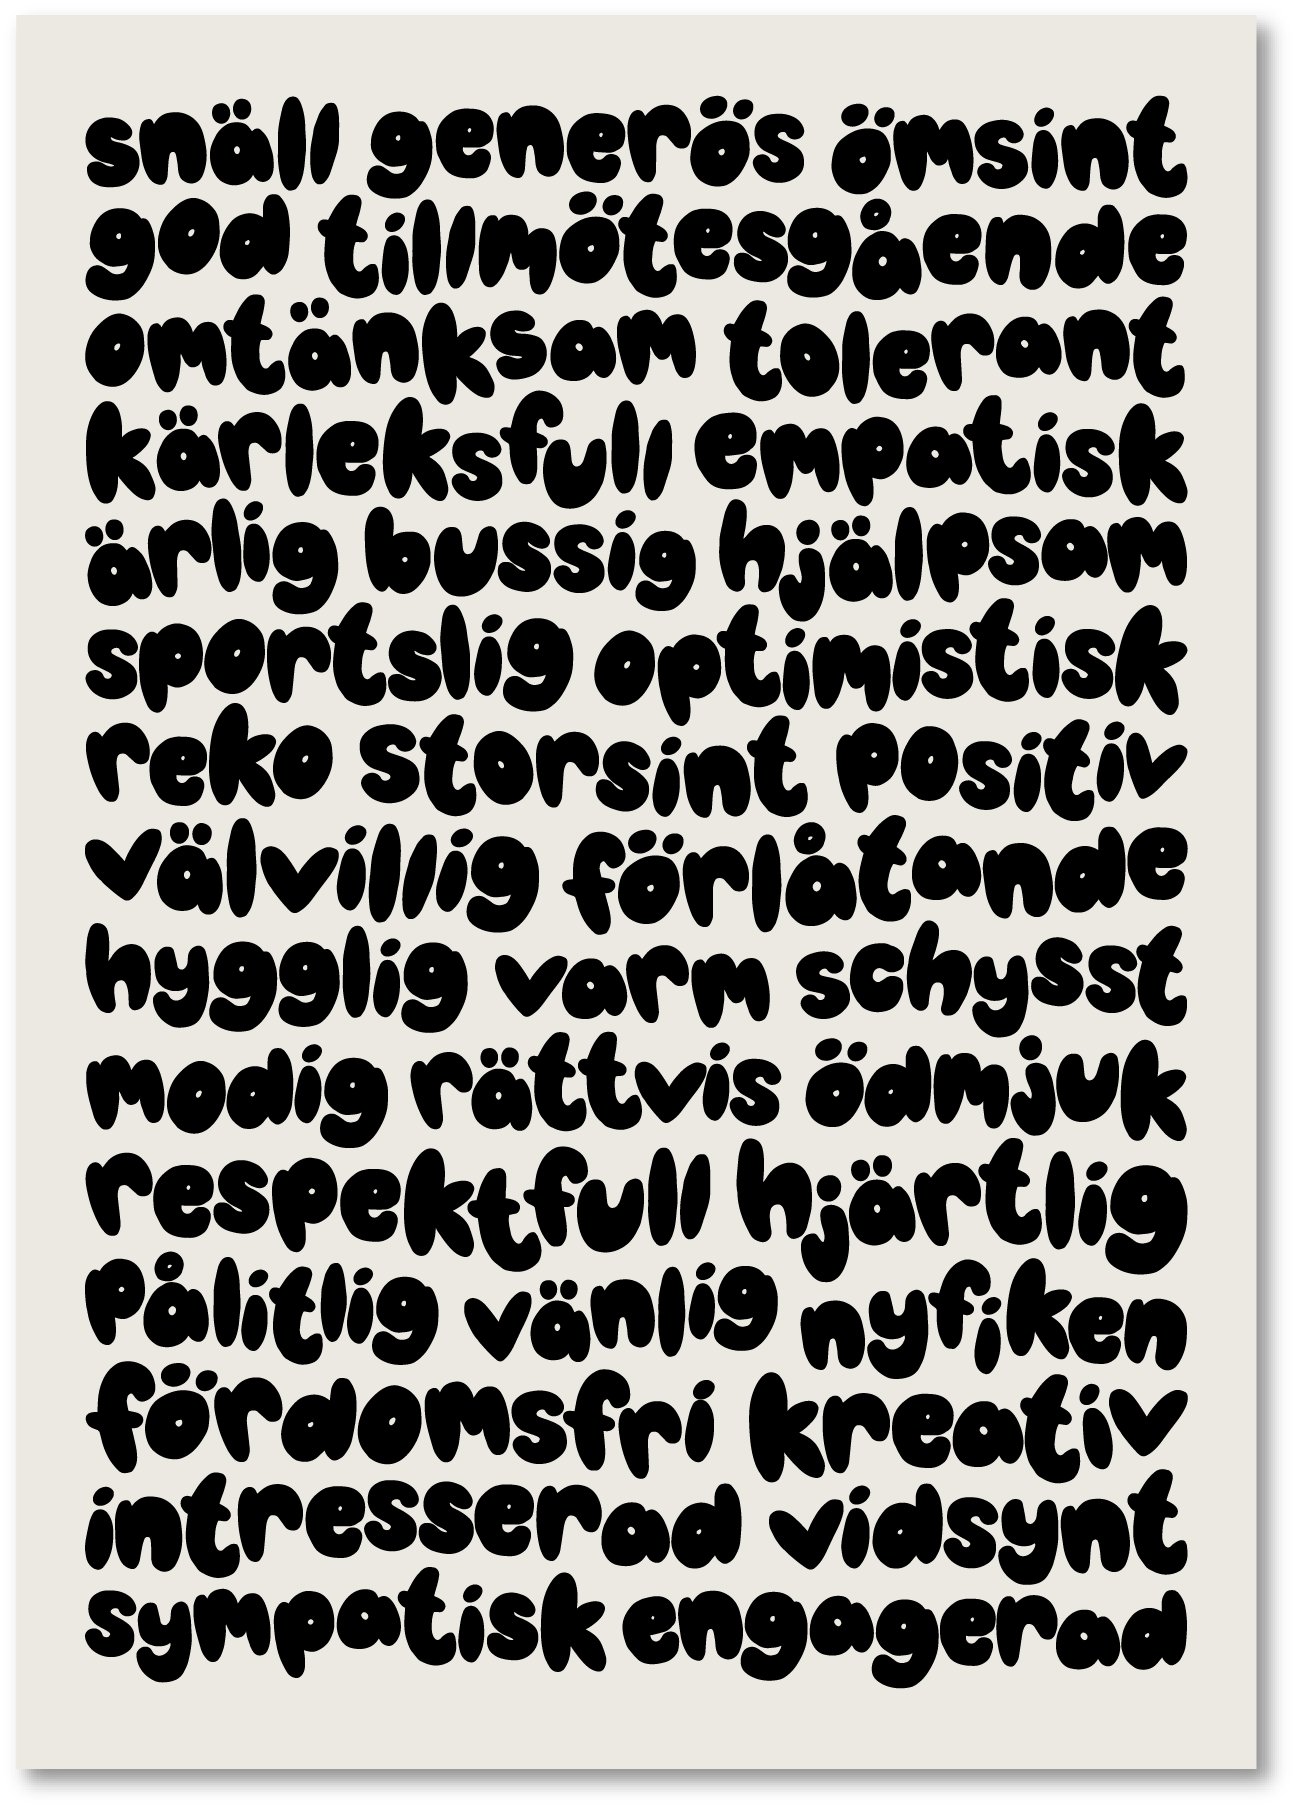 snäll generös ömsint
god tillmötesgående
omtänksam tolerant
kärleksfull empatisk
ärlig bussig hjälpsam
sportslig optimistisk
reko storsint positiv
välvillig förlåtande
hygglig varm schysst
modig rättvis ödmjuk
respektfull hjärtlig
pålitlig vänlig nyfiken
fördomsfri kreativ
intresserad vidsynt
sympatisk engagerad